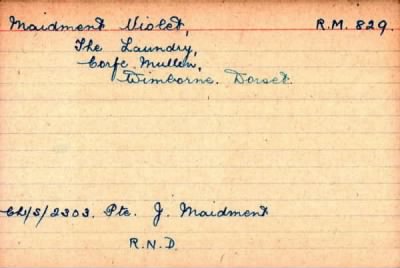 Maidment Violet, R.M. 829.
The Laundry,
Corfe Mullen,
Wimborne. Dorset.
Ch/S/2303. Pte. J. Maidment
R.N.D.